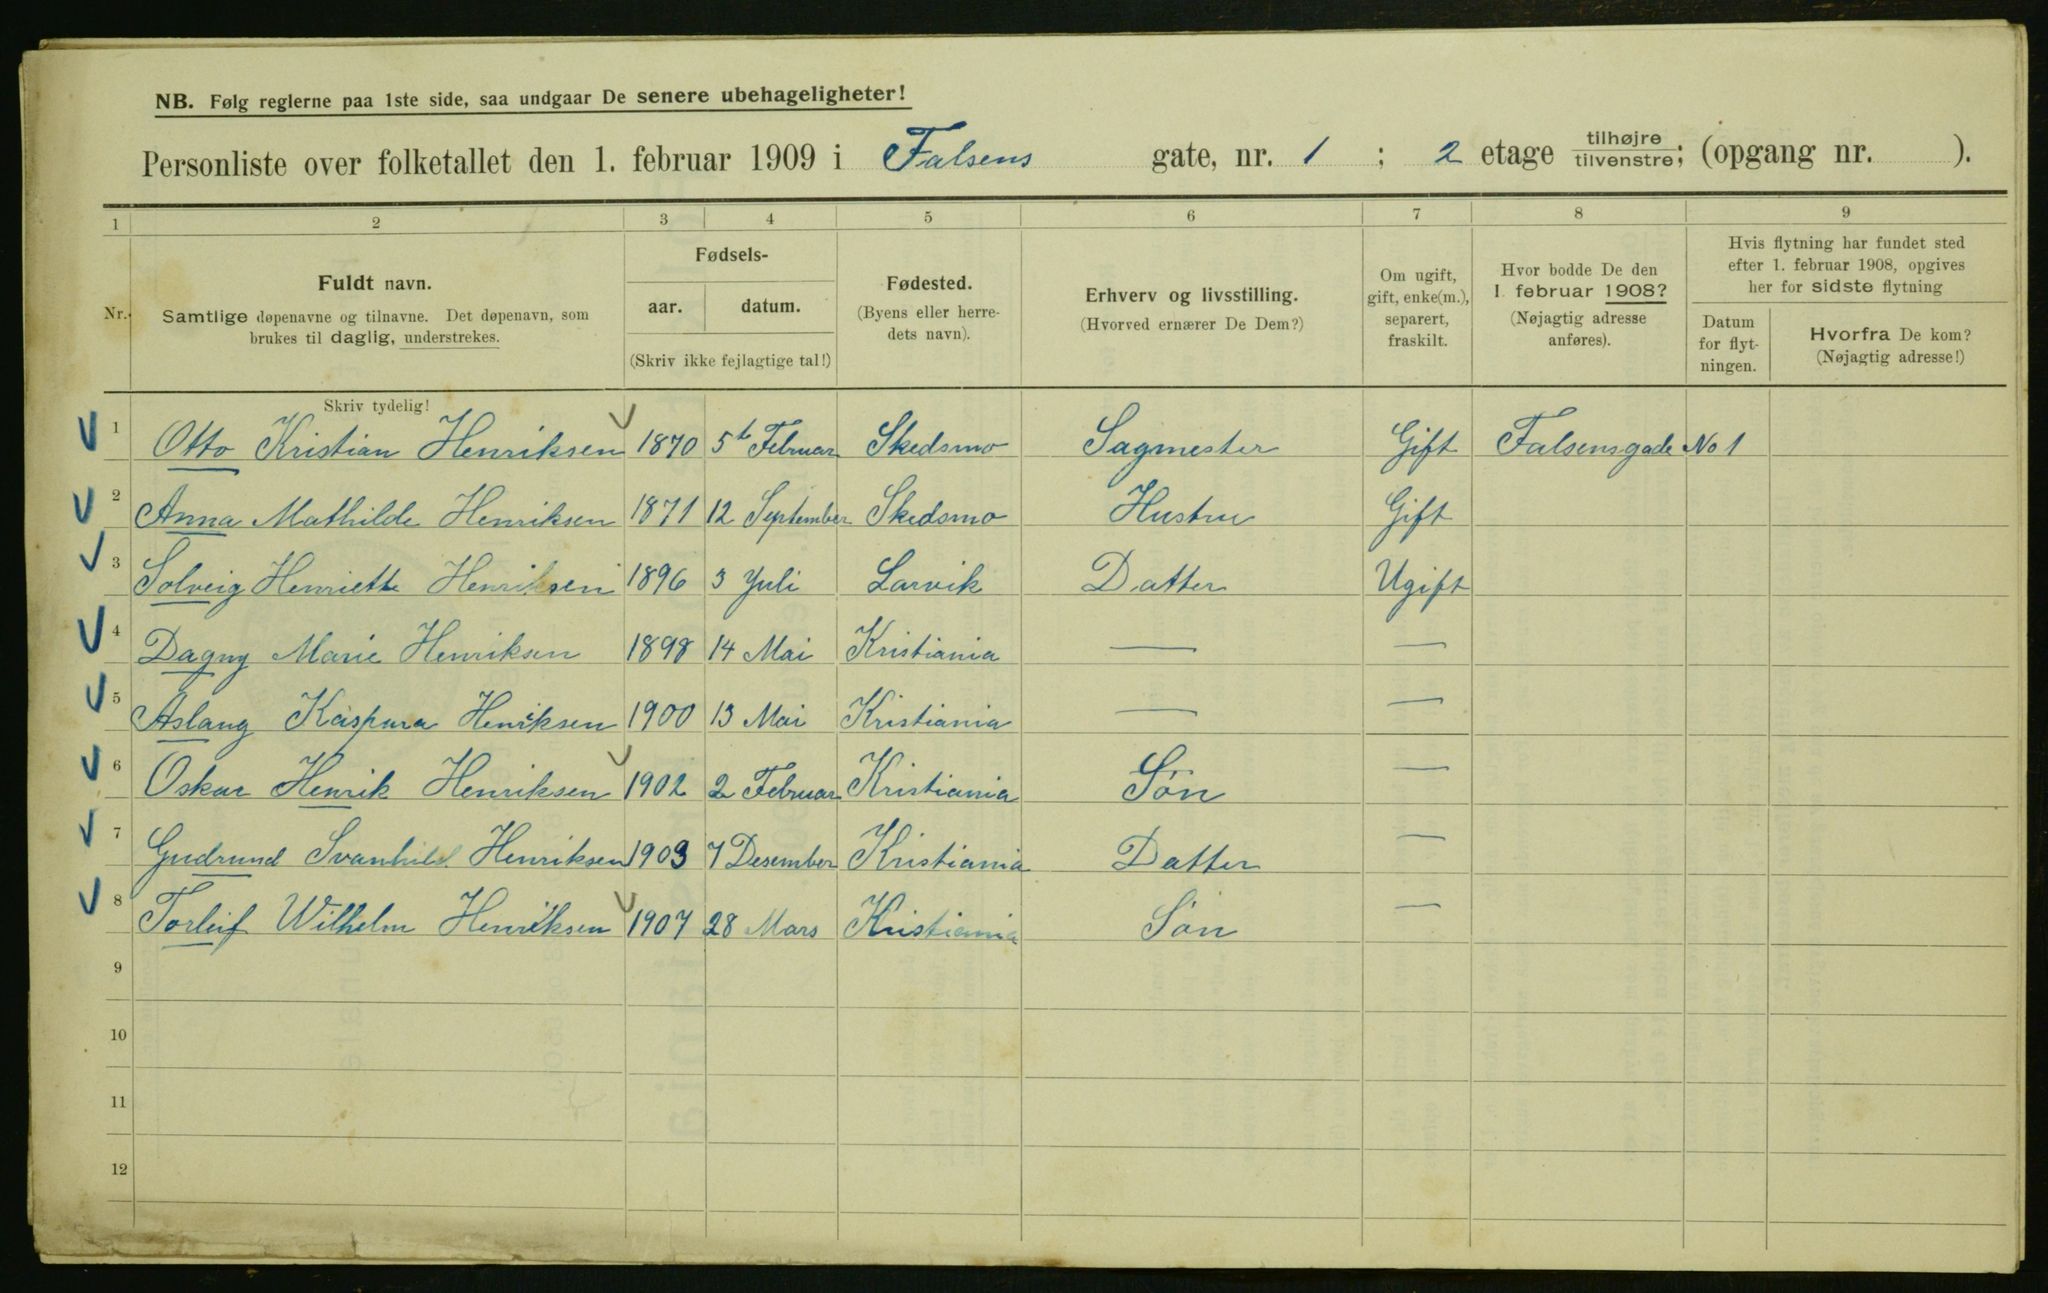 NB. Følg reglerne paa 1ste side, saa undgaar De senere ubehageligheter!
Personliste over folketallet den 1. februar 1909 i Falsens gate, nr. 1 ; 2 etage tilhøjre tilvenstre; (opgang nr. ).
1 2 3 4 5 6 7 8 9
Nr. Fuldt navn. Samtlige døpenavne og tilnavne. Det døpenavn, som brukes til daglig, understrekes.
Fødsels-
aar. datum.
(Skriv ikke fejlagtige tal!)
Fødested.
(Byens eller herre-
dets navn).
Erhverv og livsstilling.
(Hvorved ernærer De Dem?)
Om ugift,
gift, enke(m.),
separert,
fraskilt.
Hvor bodde De den
1. februar 1908?
(Nøjagtig adresse
anføres).
Hvis flytning har fundet sted
efter 1. februar 1908, opgives
her for sidste flytning
Datum
for flyt-
ningen.
Hvorfra De kom?
(Nøjagtig adresse!)
Skriv tydelig!
1 Otto Kristian Henriksen 1870 5t Februar Skedsmo Sagmester Gift Falsensgade No 1
2 Anna Mathilde Henriksen 1871 12 September Skedsmo Hustru Gift
3 Solveig Henriette Henriksen 1896 3 Juli Larvik Datter Ugift
4 Dagny Marie Henriksen 1898 14 Mai Kristiania — —
5 Aslaug Kaspara Henriksen 1900 13 Mai Kristiania — —
6 Oskar Henrik Henriksen 1902 2 Februar Kristiania Søn —
7 Gudrund Svanhild Henriksen 1903 7 Desember Kristiania Datter —
8 Torleif Wilhelm Henriksen 1907 28 Mars Kristiania Søn —
9
10
11
12